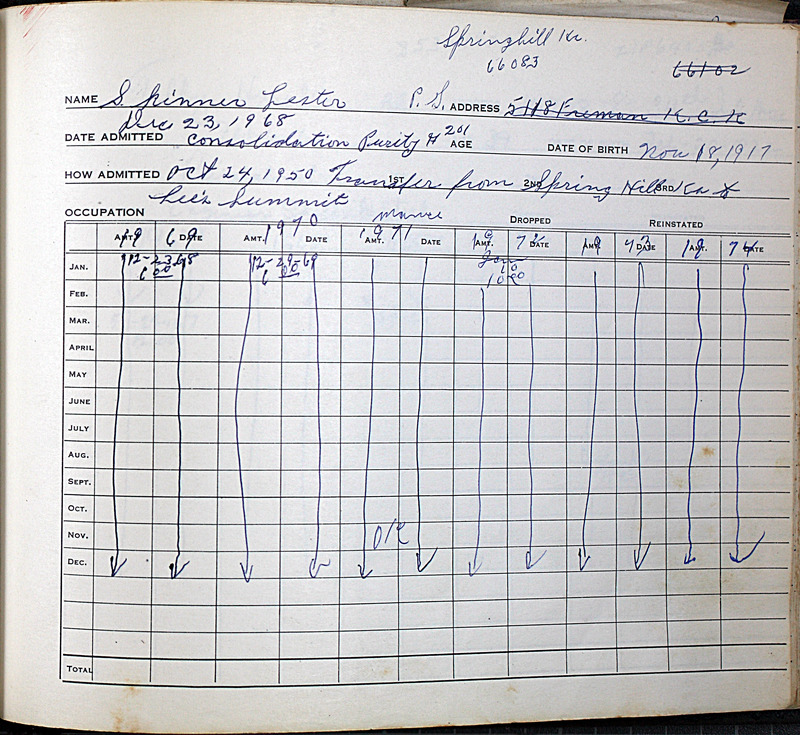 Springhill Ks.
66083
66102
NAME Skinner Lester P. G. ADDRESS 5118 Freman K.C.K
Dec 23, 1968
DATE ADMITTED Consolidation Purity # 201 AGE DATE OF BIRTH Nov 18, 1917
HOW ADMITTED Oct 24, 1950 Transfer from Spring Hill Ks 1ST 2ND 3RD
Lee's Summit
OCCUPATION DROPPED REINSTATED
1969 1970 1971 1972 1973 1974
AMT. DATE AMT. DATE AMT. DATE AMT. DATE AMT. DATE AMT. DATE
JAN. 12-23-68 12-29-69 Jan 10
6 00 6 00 10 00
FEB.
MAR.
APRIL
MAY
JUNE
JULY
AUG.
SEPT.
OCT.
NOV. OK
DEC.
TOTAL